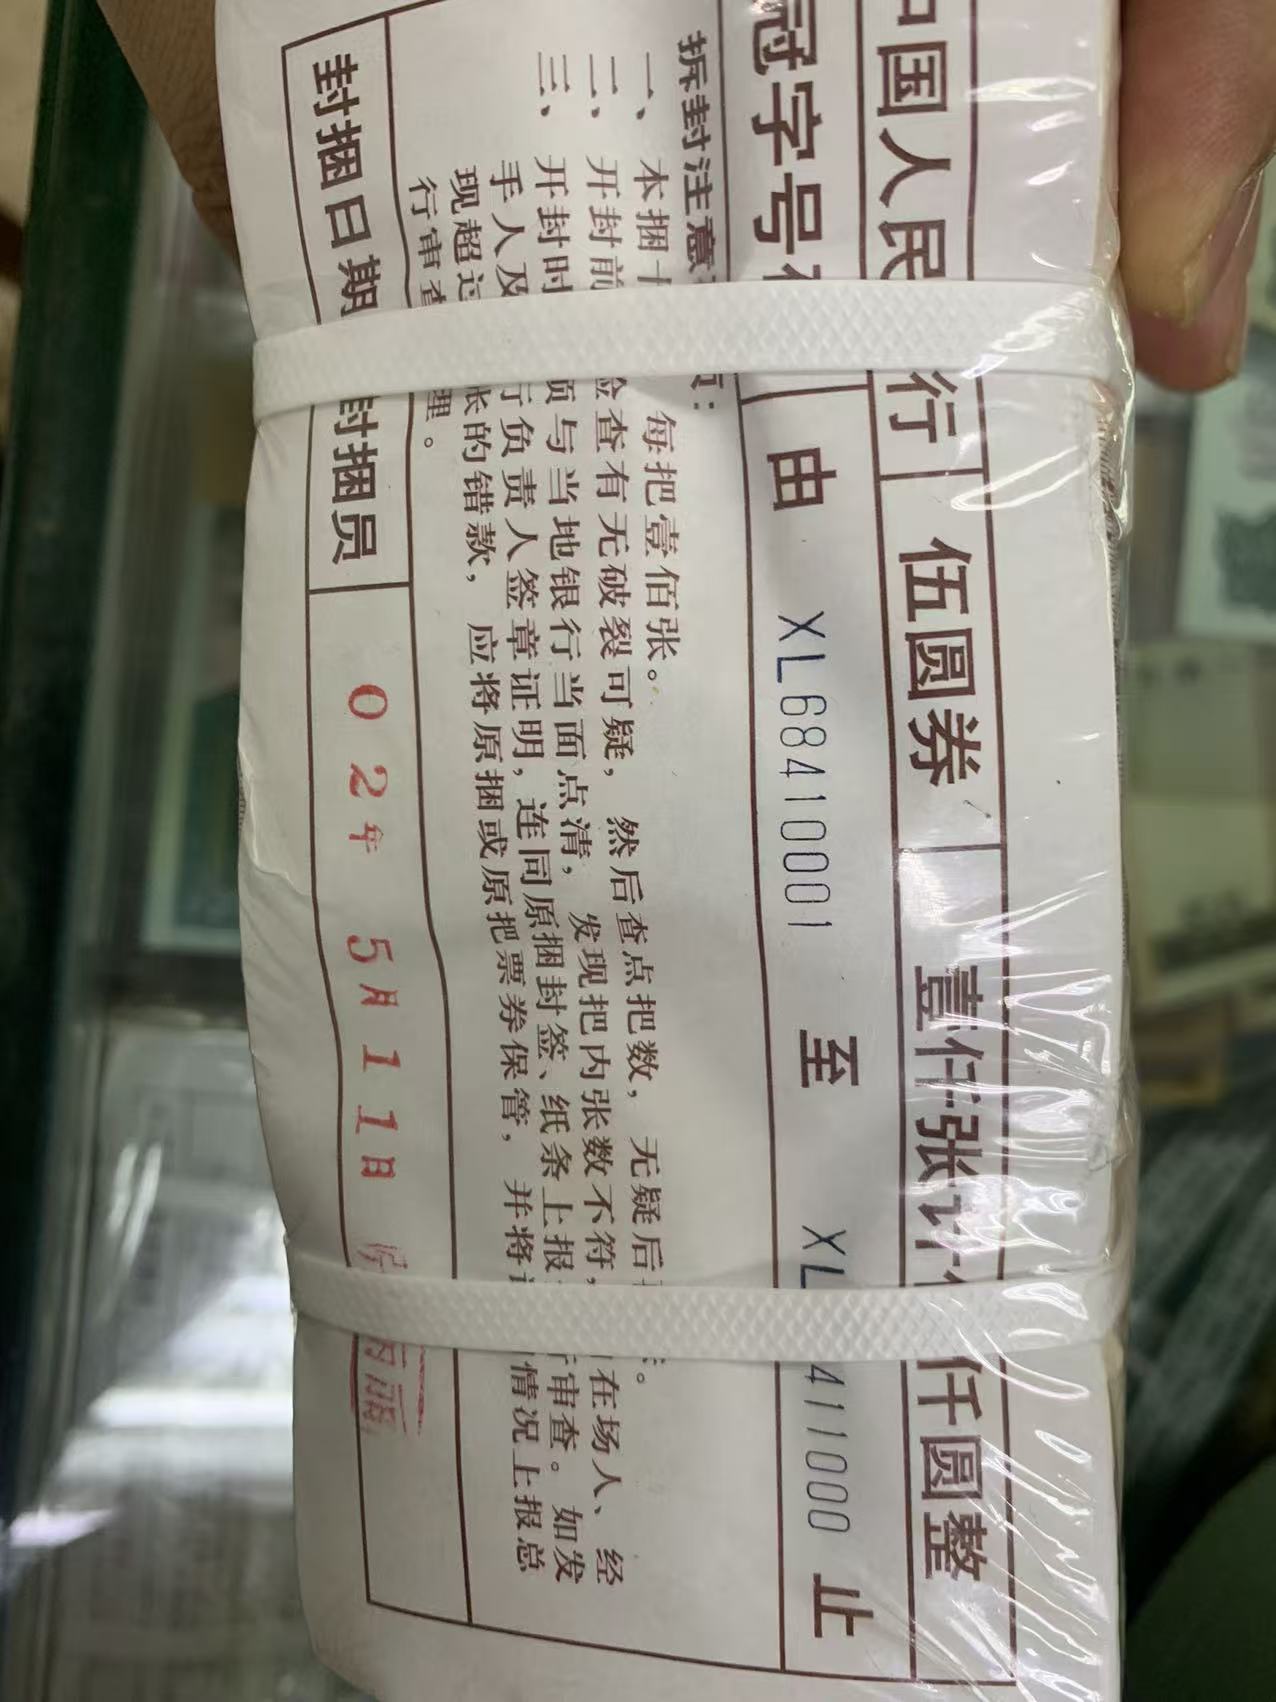 中国人民 行 伍圆券 壹仟张计 仟圆整
冠字号 由 XL68410001 至 XL 411000 止
拆封注意 :
一、本捆 每把壹佰张。
二、开封前 检查有无破裂可疑，然后查点把数，无疑后 。
三、开封时 须与当地银行当面点清，发现把内张数不符， 在场人、经
手人及 行负责人签章证明，连同原捆封签、纸条上报 审查。如发
现超过 帐的错款，应将原捆或原把票券保管，并将 情况上报总
行审查 理。
封捆日期 封捆员 02年 5月11日